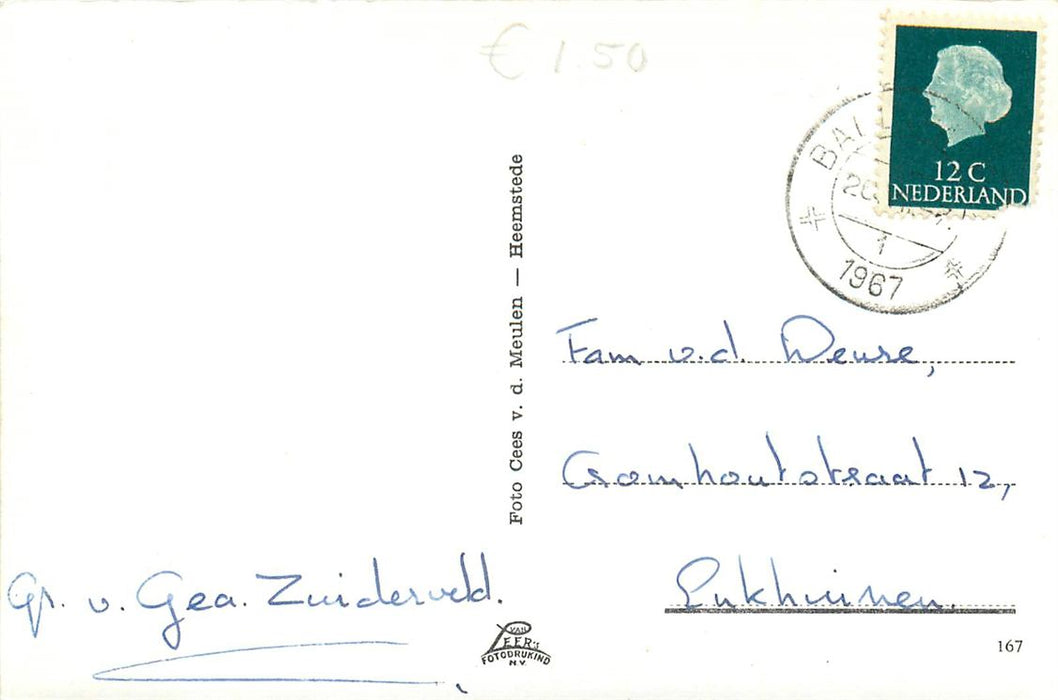 € 1.50
12 C
NEDERLAND
1
1967
Foto Cees v. d. Meulen — Heemstede
Fam v.d. Deure,
Cromhoutstraat 12,
Enkhuizen.
Gr. v. Gea. Zuiderveld.
VAN
LEER'S
FOTODRUKIND
N.V.
167